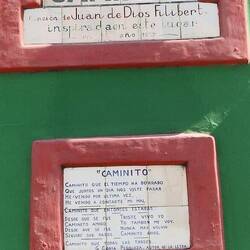 Canción de Juan de Dios Filibert.
inspirada en este lugar.
año
"CAMINITO"
CAMINITO QUE EL TIEMPO HA BORRADO
QUE JUNTOS UN DIA NOS VISTE PASAR
HE VENIDO POR ULTIMA VEZ
HE VENIDO A CONTARTE MI MAL
CAMINITO QUE ENTONCES ESTABAS
DESDE QUE SE FUE TRISTE VIVO YO
CAMINITO AMIGO YO TAMBIEN ME VOY
DESDE QUE SE FUE NUNCA MAS VOLVIO
SEGUIRE SUS PASOS CAMINITO ADIOS
CAMINITO QUE TODAS LAS TARDES
G. CORIA PEÑALOZA, AUTOR DE LA LETRA